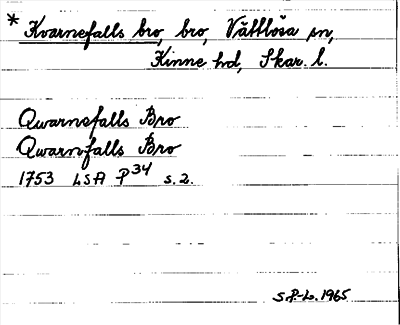 * Kvarnefalls bro, bro, Vättlösa sn,
Kinne hd, Skar. l.
Qwarnefalls Bro
Qwarnfalls Bro
1753 LSA P34 s.2.
S.P.-L. 1965